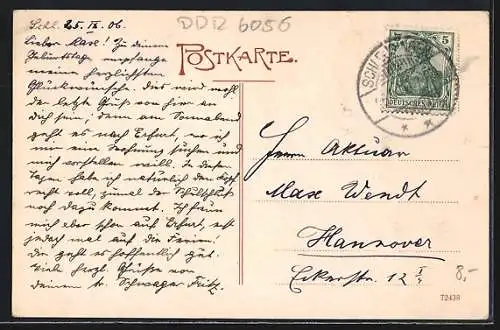 DDR 6056
Schl. 25. IX. 06.
Lieber Max! Zu deinem
Geburtstage empfange
meine herzlichsten
Glückwünsche. Dies wird wohl
der letzte Gruß von hier an
dich sein; denn am Sonnabend
geht es nach Erfurt, wo ich
mir eine Wohnung suchen und
mich vorstellen will. In diesen
Tagen habe ich natürlich den Kopf
recht voll, zumal der Schulschluß
noch dazu kommt. Ich freue
mich aber schon auf Erfurt, erst
jedoch mal auf die Ferien!
Dir geht es hoffentlich gut.
Viele herzl. Grüße von
deinem Schwager Fritz.
POSTKARTE.
5
DEUTSCHES REICH
Herrn Aktuar
Max Wendt
Hannover
Eckerstr. 12 I
8,-
72439